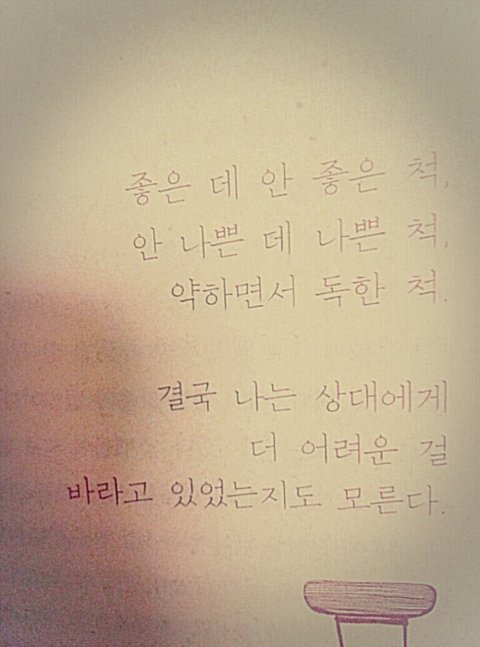 좋은 데 안 좋은 척,
안 나쁜 데 나쁜 척,
약하면서 독한 척.
결국 나는 상대에게
더 어려운 걸
바라고 있었는지도 모른다.